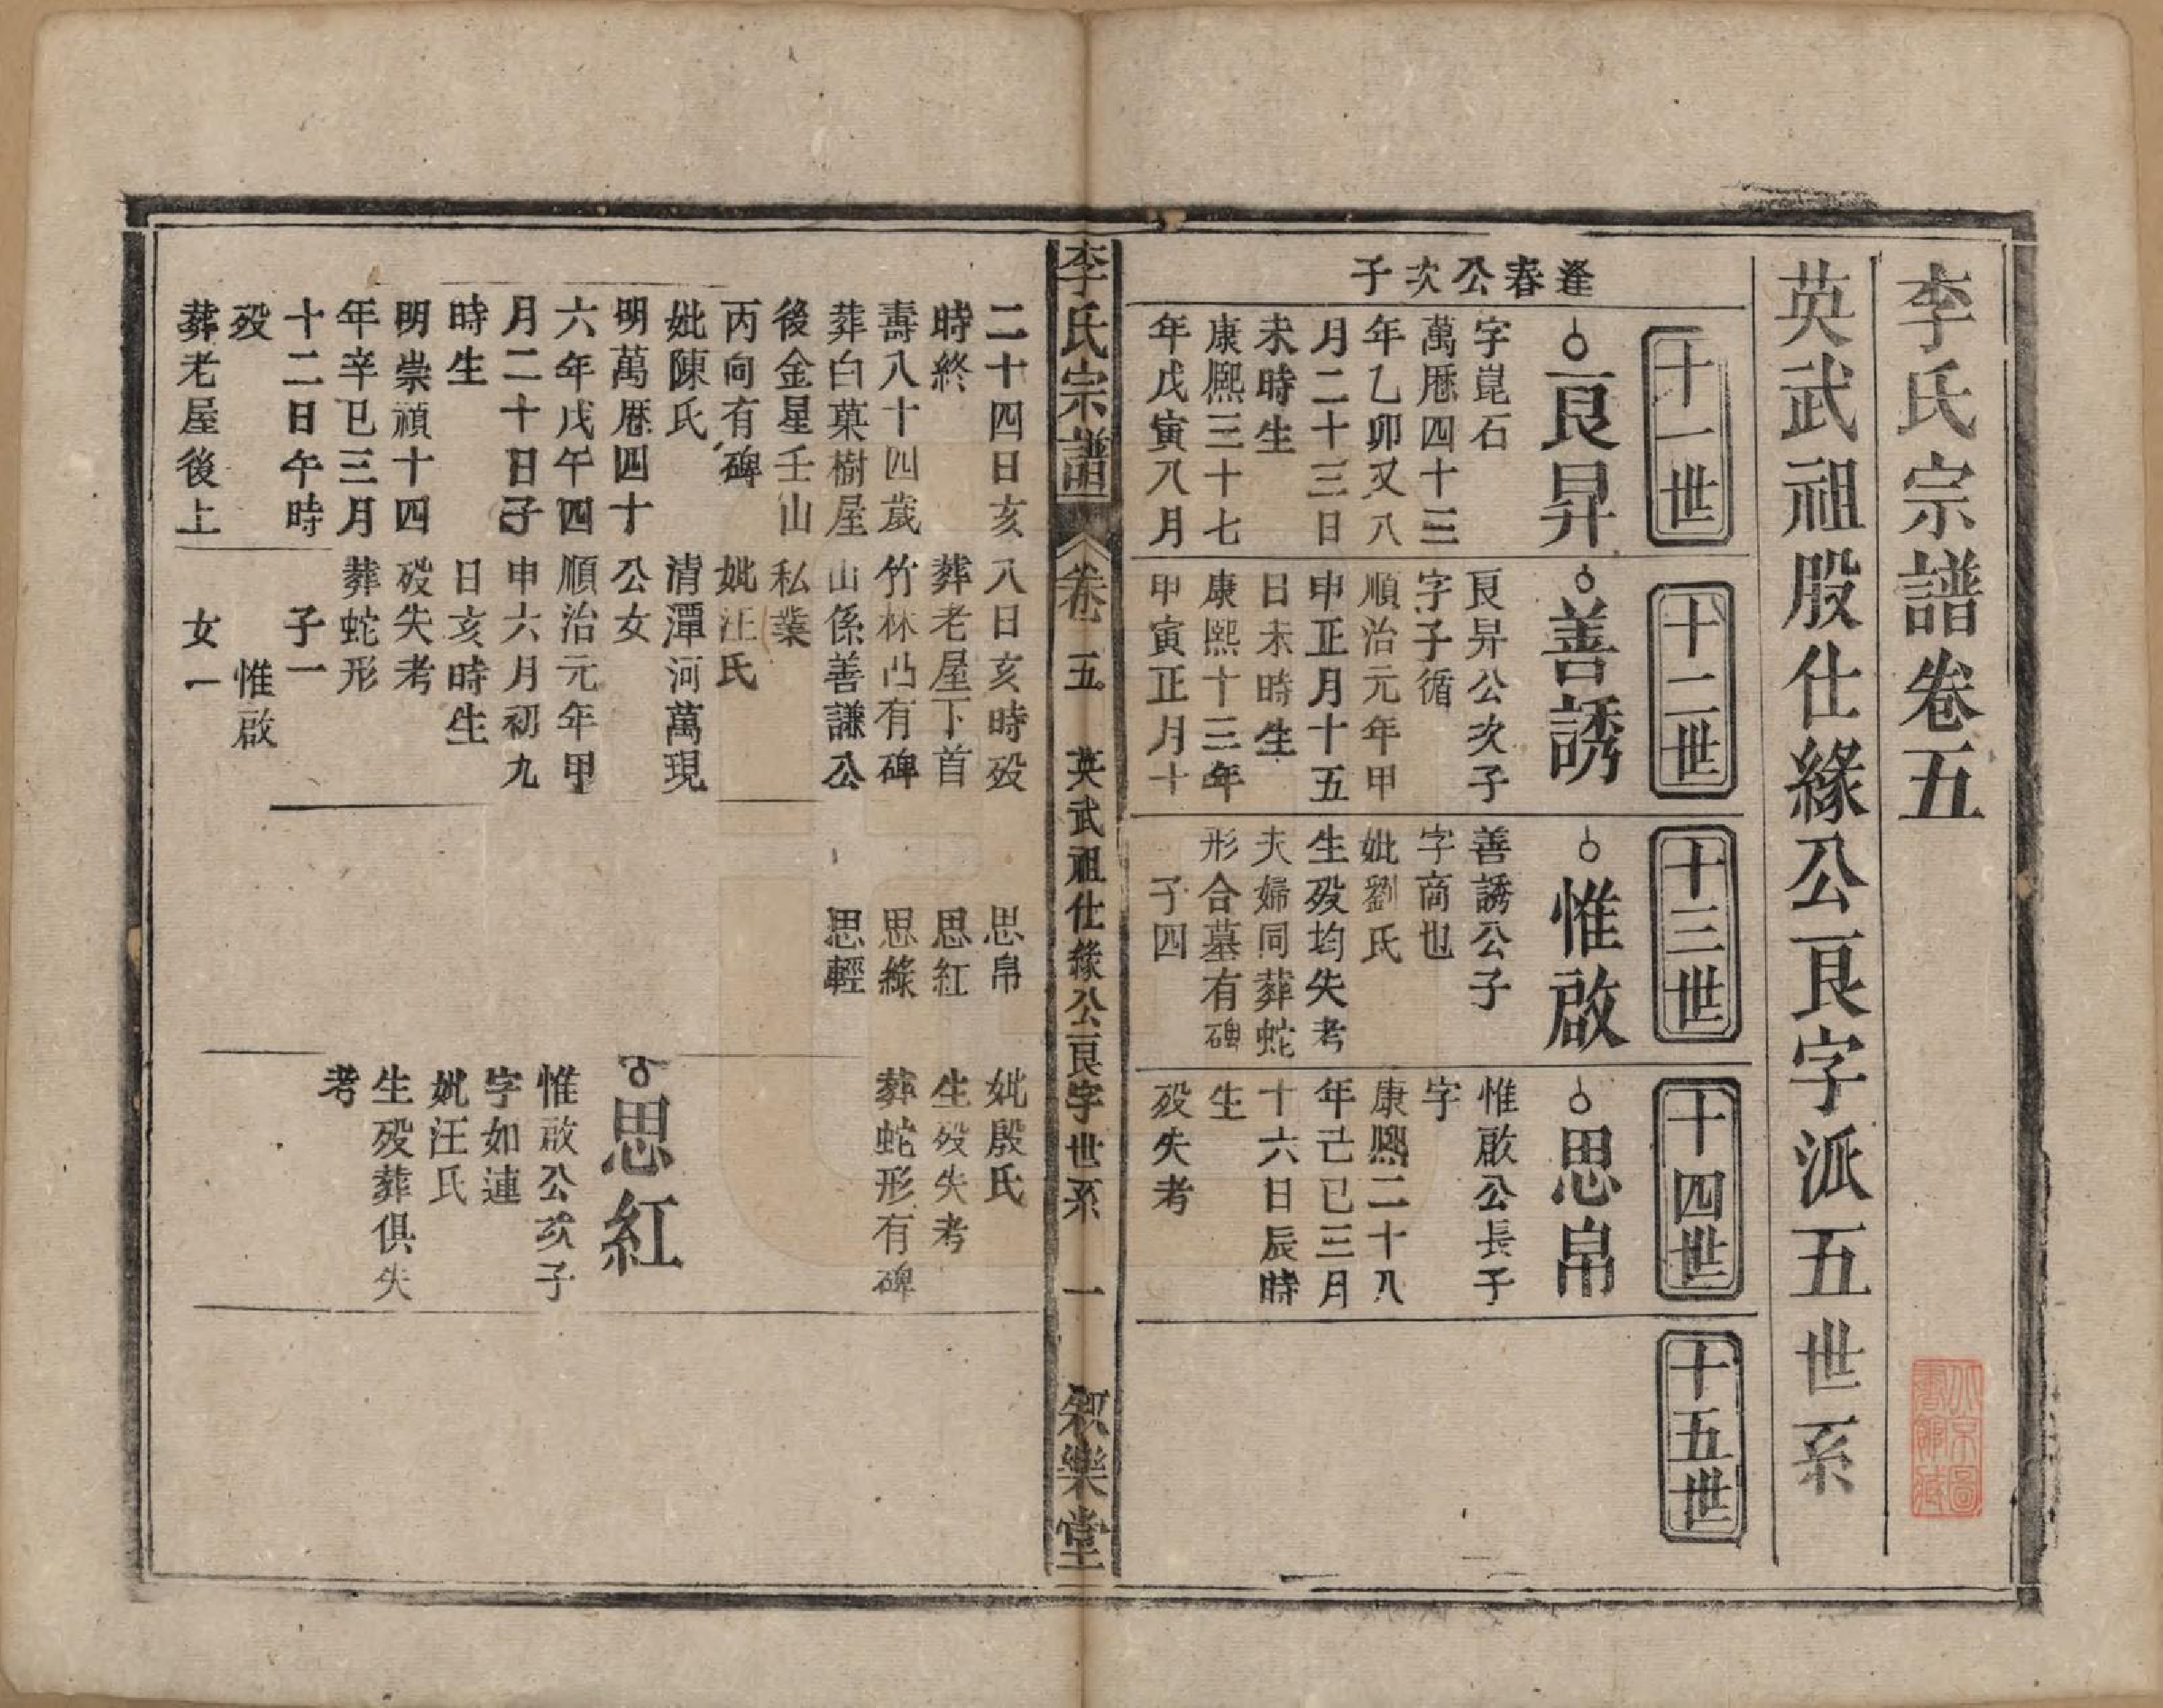 李氏宗譜卷五
英武祖股仕緣公艮字派五世系
十一世
十二世
十三世
十四世
十五世
逢春公次子
艮昇
字崑石
萬曆四十三
年乙卯又八
月二十三日
未時生
康熙三十七
年戊寅八月
善誘
艮昇公次子
字子循
順治元年甲
申正月十五
日未時生
康熙十三年
甲寅正月十
惟啟
善誘公子
字商也
妣劉氏
生歿均失考
夫婦同葬蛇
形合墓有碑
子四
思帛
惟啟公長子
字
康熙二十八
年己巳三月
十六日辰時
生
歿失考
李氏宗譜
卷五
英武祖仕緣公艮字世系
一
敘樂堂
二十四日亥
時終
壽八十四歲
葬白菓樹屋
後金星壬山
丙向有碑
妣陳氏
明萬曆四十
六年戊午四
月二十日子
時生
明崇禎十四
年辛巳三月
十二日午時
歿
葬老屋後上
八日亥時歿
葬老屋下首
竹林凸有碑
山係善謙公
私業
妣汪氏
清潭河萬現
公女
順治元年甲
申六月初九
日亥時生
歿失考
葬蛇形
子一
惟啟
女一
思帛
思紅
思綠
思輕
妣殷氏
生歿失考
葬蛇形有碑
思紅
惟啟公次子
字如連
妣汪氏
生歿葬俱失
考
北京圖
書館藏